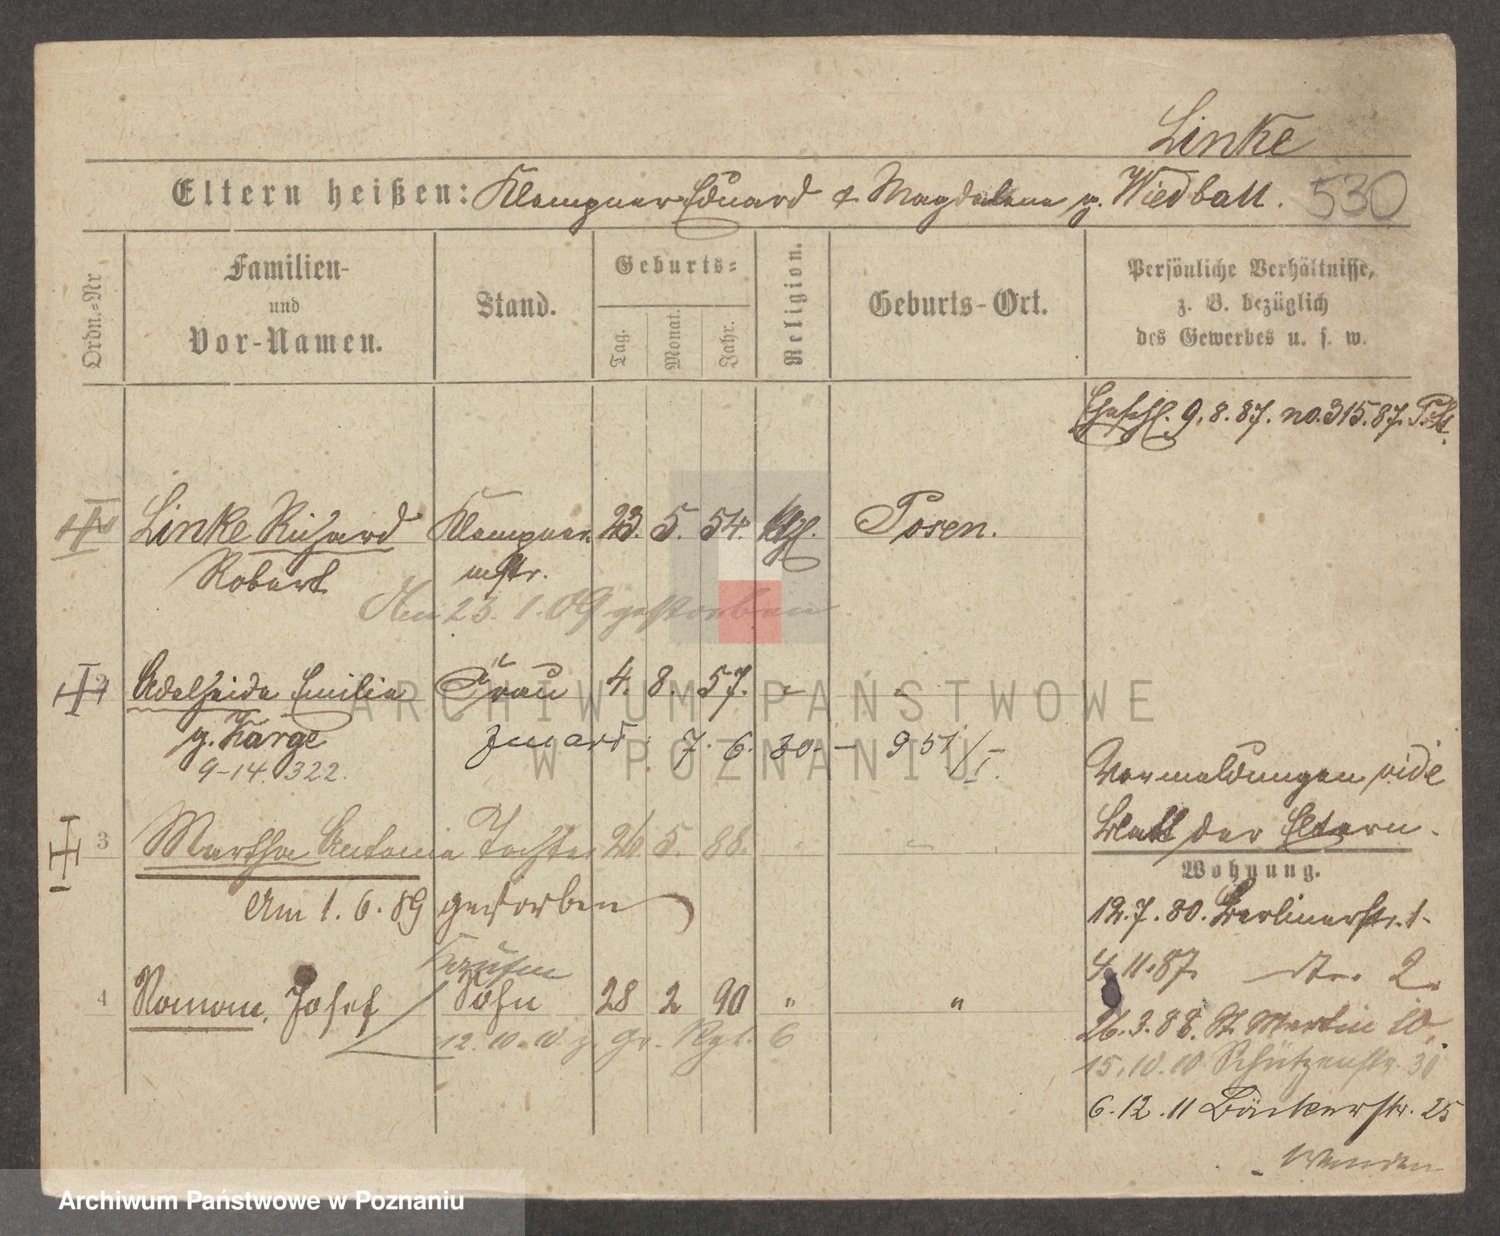 Linke
Eltern heißen: Klempner Eduard & Magdalena g. Wiedball. 530
Ordn.-Nr
Familien-
und
Vor-Namen.
Stand.
Geburts-
Tag.
Monat.
Jahr.
Religion.
Geburts-Ort.
Persönliche Verhältnisse,
z. B. bezüglich
des Gewerbes u. s. w.
Eheschl. 9.8.87. no. 315.87.
Linke Richard Klempner 23. 5. 54. Kth. Posen.
Robert mstr.
Am 23.1.09 gestorben
2 Adelheida Emilia Frau 4. 8. 57.
g. Karge 7. 6. 30.
9-14. 322.
Vermeldungen vide
Blatt der Eltern.
3 Martha Antonie Tochter 26. 5. 88.
Am 1.6.89 gestorben
Wohnung.
12.7.80. Berlinerstr. 1.
4.11.87. dto. 2.
Kaufm
4 Roman, Josef Sohn 28 2 90 " "
26.3.88. St Martin 10.
15.10.10 Schützenstr. 31
6.12.11 Bäckerstr. 25
Wenden
ARCHIWUM PAŃSTWOWE
W POZNANIU
Archiwum Państwowe w Poznaniu